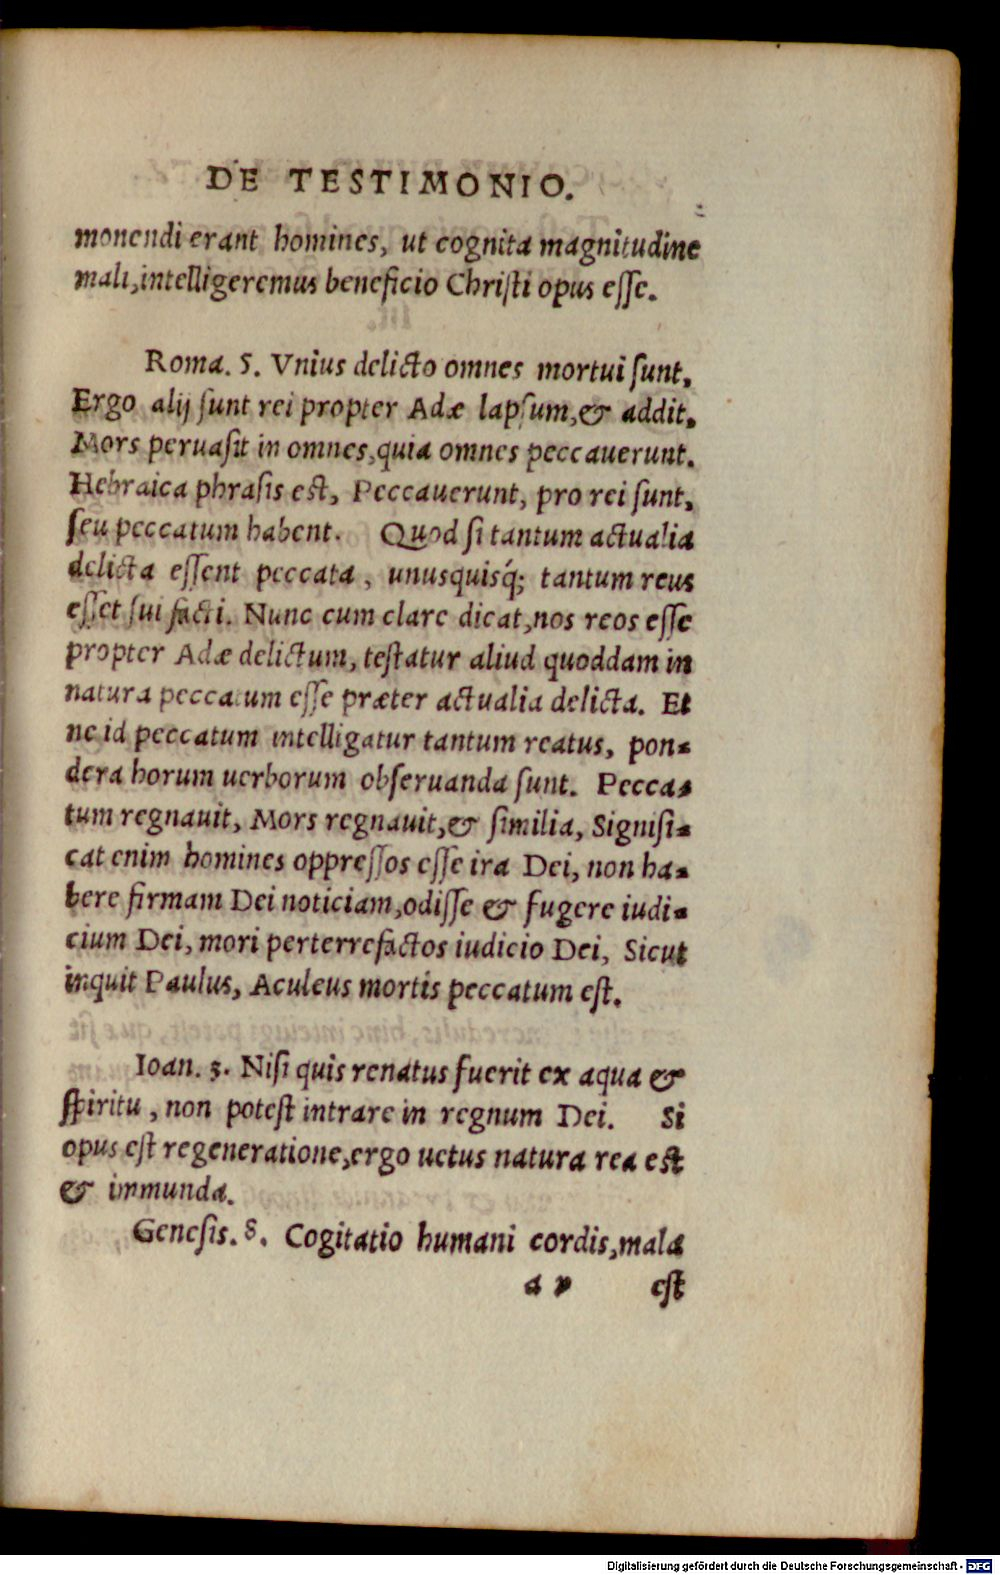 DE TESTIMONIO.
monendi erant homines, ut cognita magnitudine
mali, intelligeremus beneficio Christi opus esse.
Roma. 5. Vnius delicto omnes mortui sunt,
Ergo alij sunt rei propter Adæ lapsum, & addit,
Mors peruasit in omnes, quia omnes peccauerunt.
Hebraica phrasis est, Peccauerunt, pro rei sunt,
seu peccatum habent. Quod si tantum actualia
delicta essent peccata, unusquisq́; tantum reus
esset sui facti. Nunc cum clare dicat, nos reos esse
propter Adæ delictum, testatur aliud quoddam in
natura peccatum esse præter actualia delicta. Et
ne id peccatum intelligatur tantum reatus, pon-
dera horum uerborum obseruanda sunt. Pecca-
tum regnauit, Mors regnauit, & similia, Signifi-
cat enim homines oppressos esse ira Dei, non ha-
bere firmam Dei noticiam, odisse & fugere iudi-
cium Dei, mori perterrefactos iudicio Dei, Sicut
inquit Paulus, Aculeus mortis peccatum est.
Ioan. 3. Nisi quis renatus fuerit ex aqua &
spiritu, non potest intrare in regnum Dei. Si
opus est regeneratione, ergo uetus natura rea est
& immunda.
Genesis. 8. Cogitatio humani cordis, mala
a v est
Digitalisierung gefördert durch die Deutsche Forschungsgemeinschaft - DFG